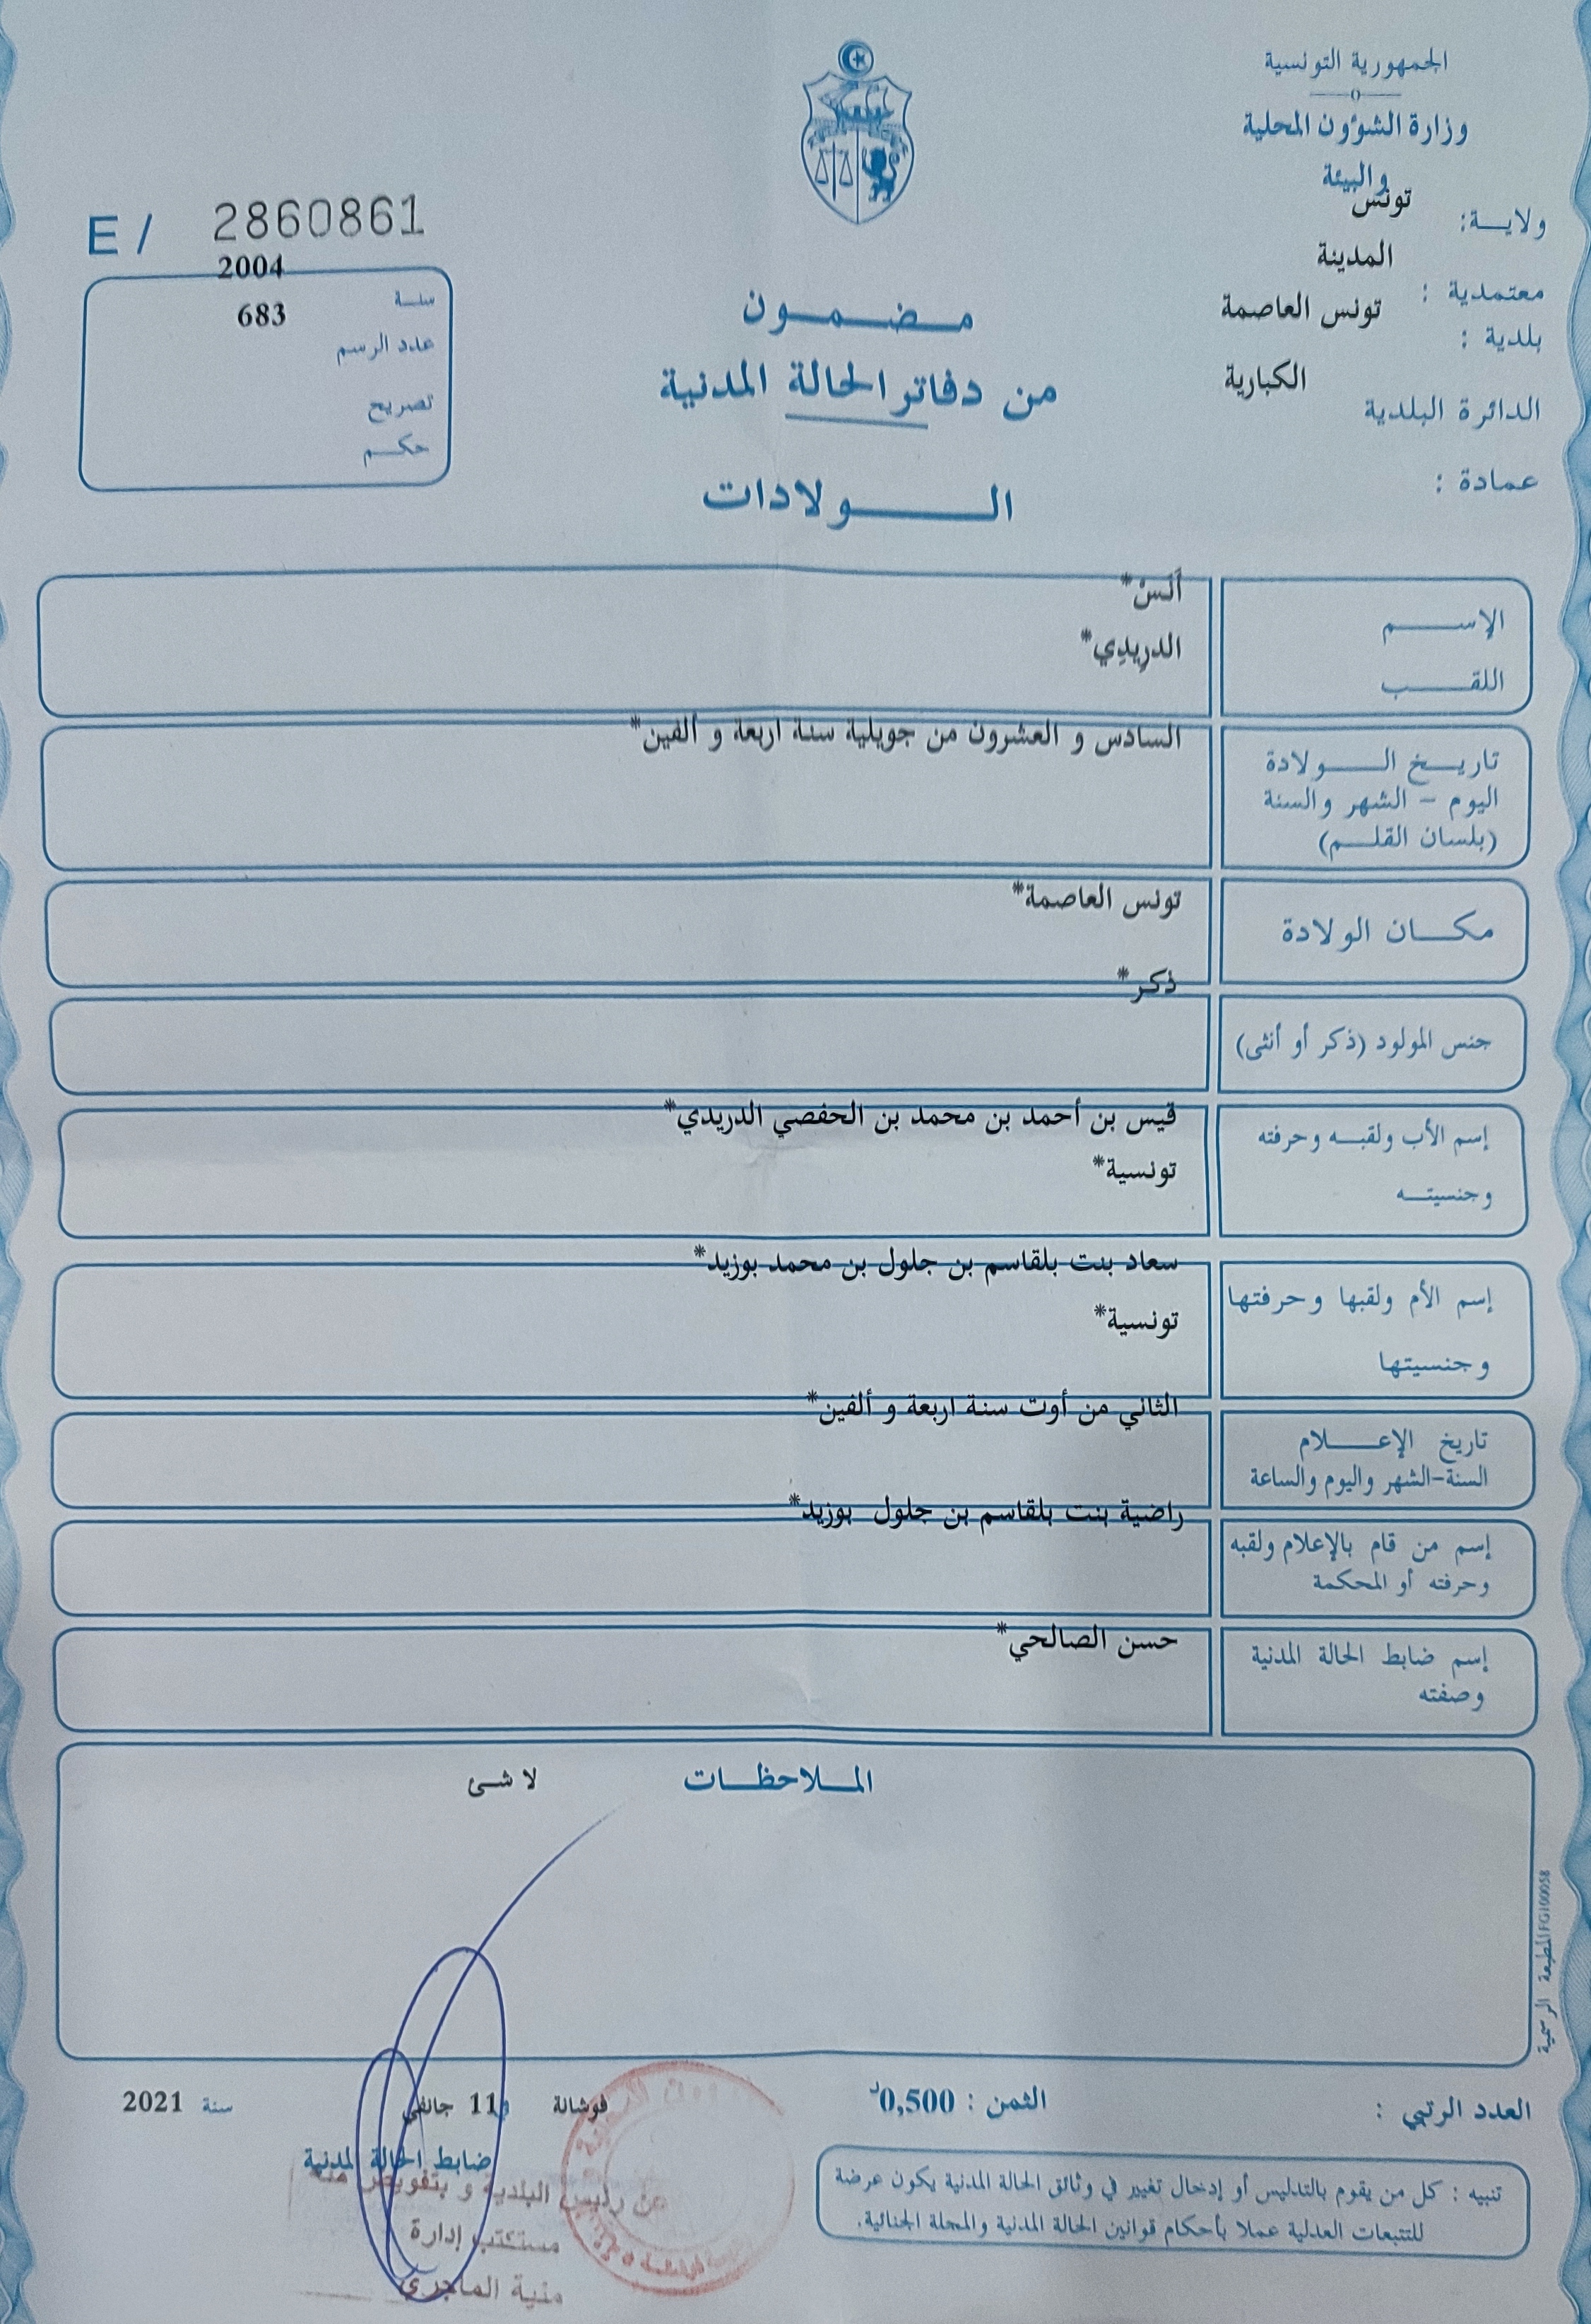 الجمهورية التونسية
وزارة الشؤون المحلية
والبيئة
ولايـــة: تونس
معتمدية : المدينة
بلدية : تونس العاصمة
الدائرة البلدية الكبارية
عمادة :
E / 2860861
سنـة 2004
عدد الرسم 683
تصريح
حكـم
مـضـمـون
من دفاتر الحالة المدنية
الـولادات
الإسـم أنس*
اللقـب الدريدي*
تاريـخ الـولادة السادس و العشرون من جويلية سنة اربعة و ألفين*
اليوم - الشهر والسنة
(بلسان القلـم)
مكـان الولادة تونس العاصمة*
جنس المولود (ذكر أو أنثى) ذكر*
إسم الأب ولقبـه وحرفته قيس بن أحمد بن محمد بن الحفصي الدريدي*
وجنسيتـه تونسية*
إسم الأم ولقبها وحرفتها سعاد بنت بلقاسم بن جلول بن محمد بوزيد*
وجنسيتها تونسية*
تاريخ الإعـلام الثاني من أوت سنة اربعة و ألفين*
السنة-الشهر واليوم والساعة
إسم من قام بالإعلام ولقبه راضية بنت بلقاسم بن جلول بوزيد*
وحرفته أو المحكمة
إسم ضابط الحالة المدنية حسن الصالحي*
وصفته
الملاحظات لا شئ
المطبعة الرسمية FG100058
العدد الرتبي :
الثمن : 0,500د
فوشانة 11 جانفي سنة 2021
ضابط الحالة المدنية
عن رئيس البلدية و بتفويض منه
مستكتب إدارة
منية الماجري
تنبيه : كل من يقوم بالتدليس أو إدخال تغيير في وثائق الحالة المدنية يكون عرضة
للتتبعات العدلية عملا بأحكام قوانين الحالة المدنية والمجلة الجنائية.